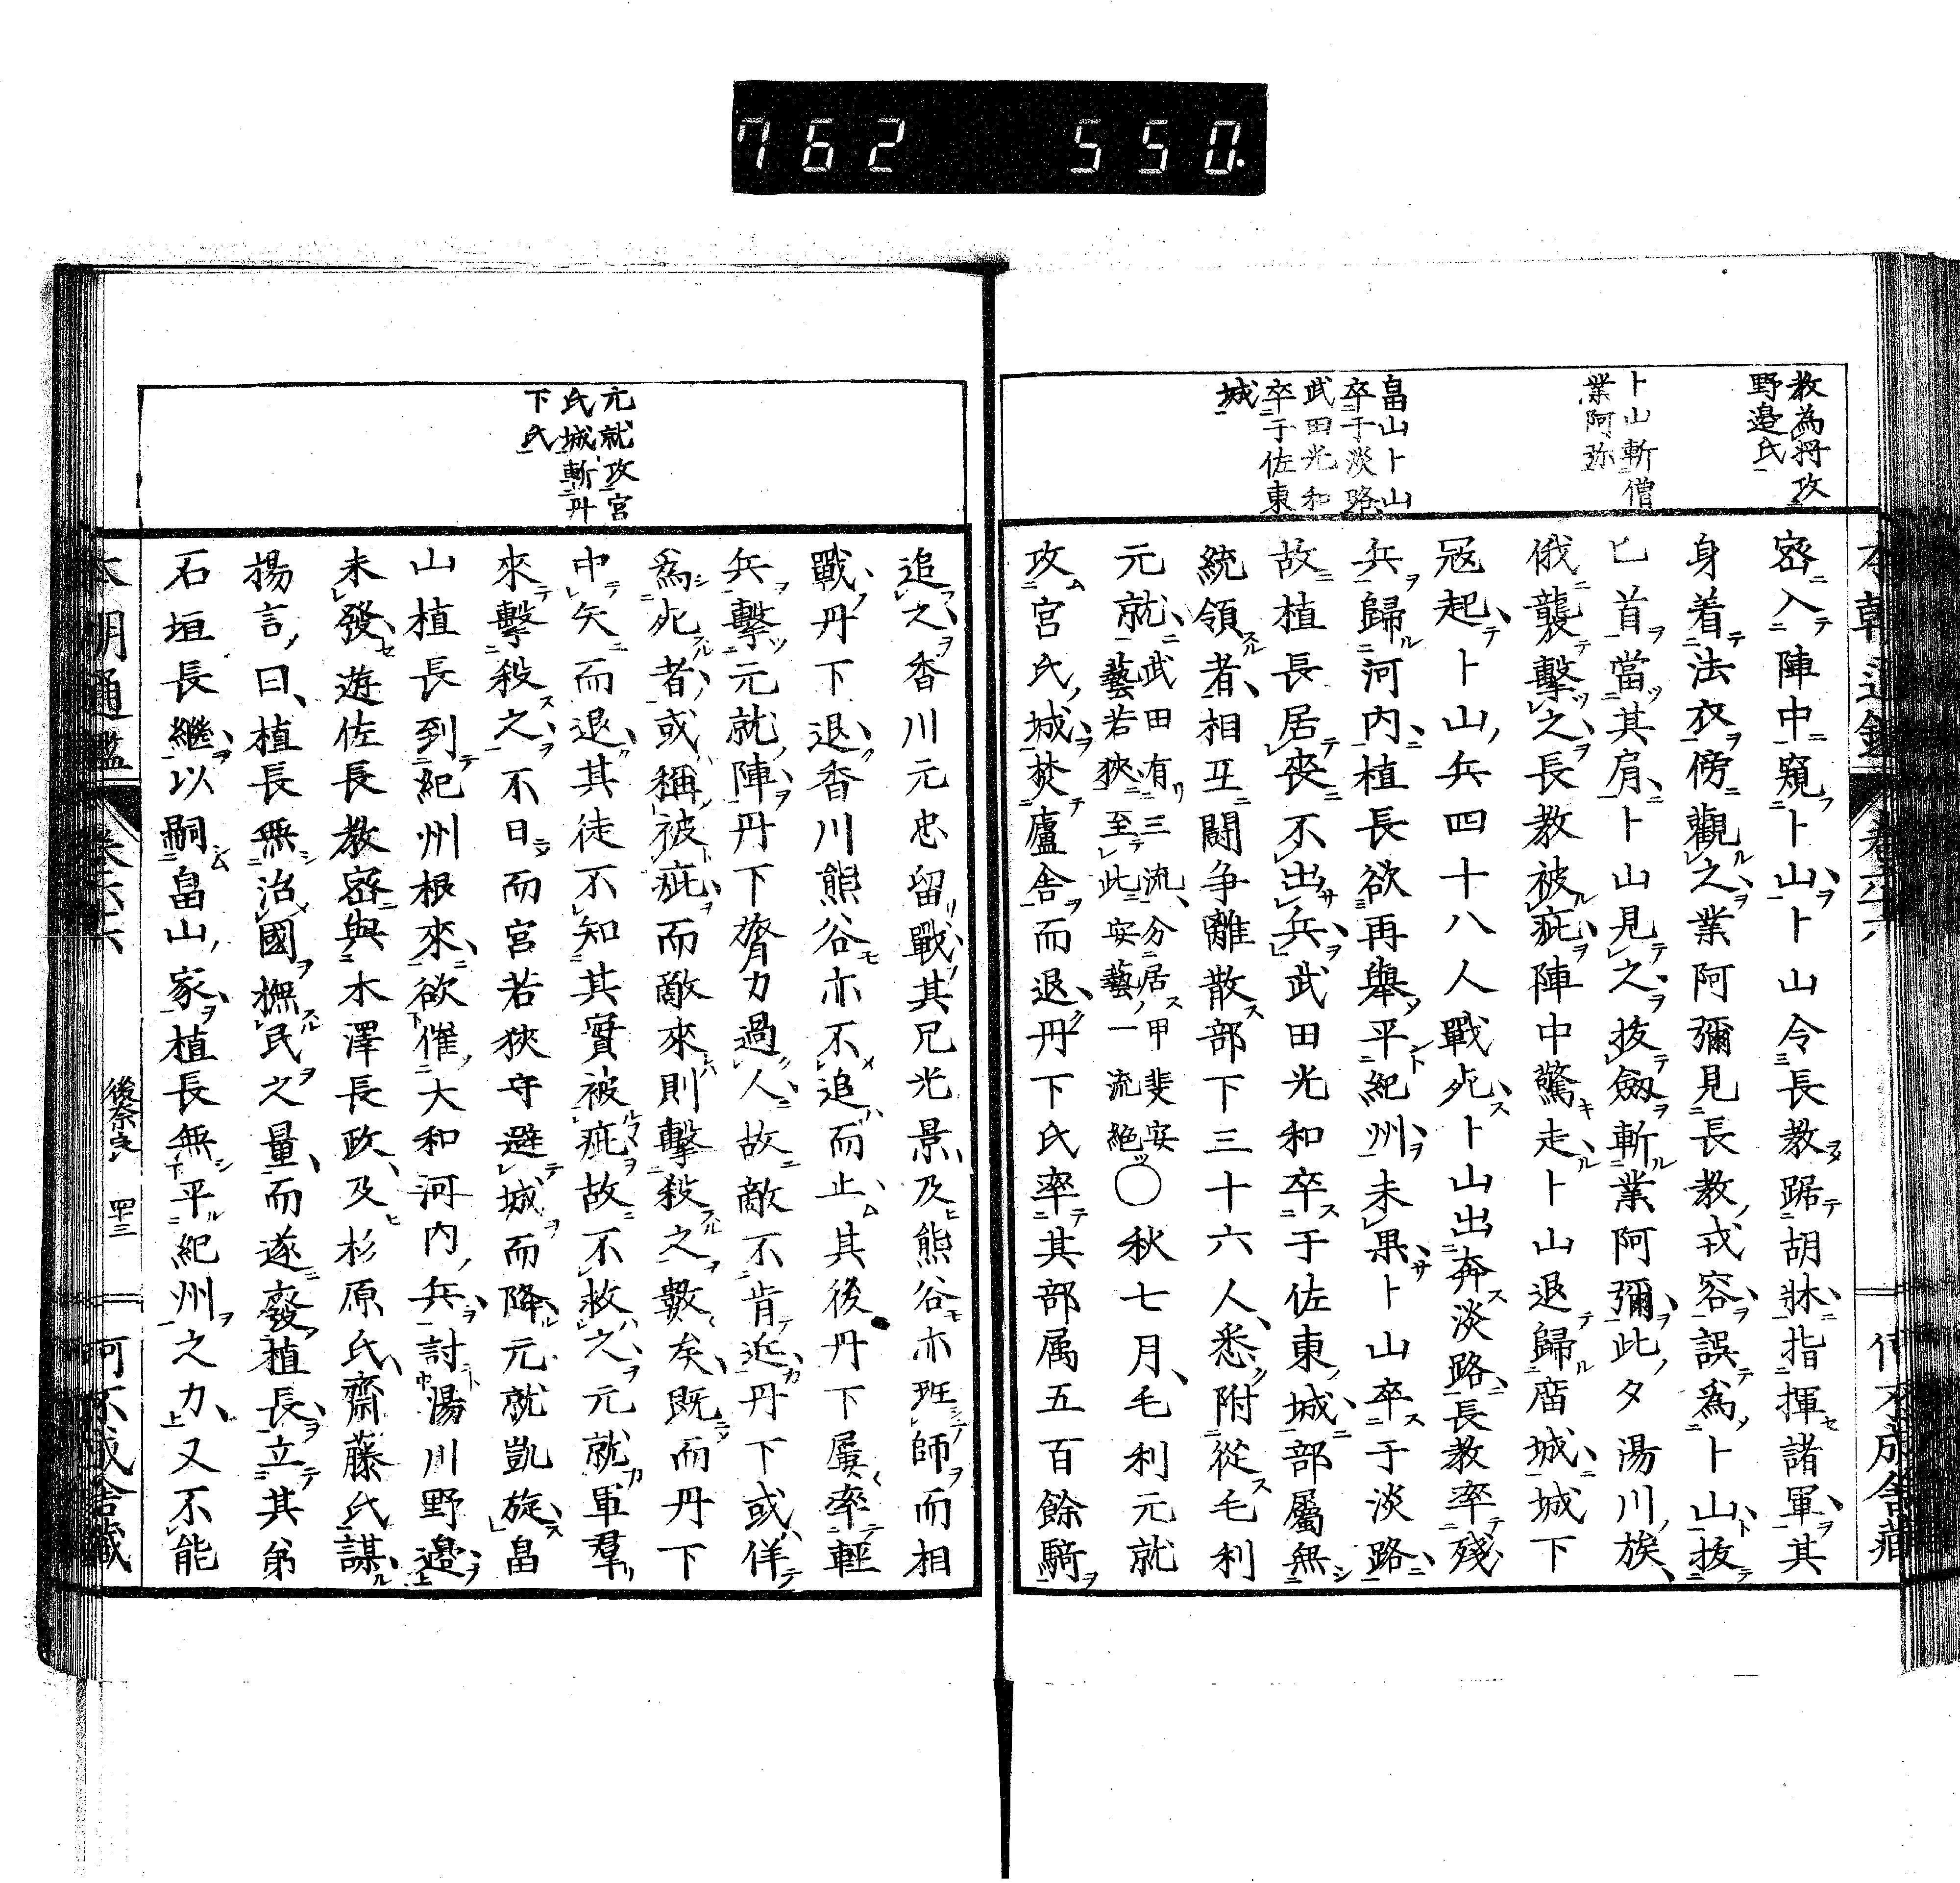 762 550.
教為將攻
野邉氏
卜山斬僧
業阿弥
畠山卜山
卒于淡路
武田光和
卒于佐東
城
密入陣中窺卜山卜山令長教踞胡牀指揮諸軍其
身着法衣傍觀之業阿彌見長教戎容誤為卜山抜
匕首當其肩卜山見之抜劔斬業阿彌此夕湯川族
俄襲擊之長教被疵陣中驚走卜山退歸廣城城下
冦起卜山兵四十八人戰死卜山出奔淡路長教率殘
兵歸河内植長欲再舉平紀州未果卜山卒于淡路
故植長居喪不出兵武田光和卒于佐東城部屬無
統領者相互鬪爭離散部下三十六人悉附從毛利
元就武田有三流分居甲斐安藝若狹至此安藝一流絶〇秋七月毛利元就
攻宮氏城焚廬舎而退丹下氏率其部属五百餘騎
元就攻宮
氏城斬丹
下氏
追之香川元忠留戰其兄光景及熊谷亦班師而相
戰丹下退香川熊谷亦不追而止其後丹下屢率輕
兵擊元就陣丹下膂力過人故敵不肯近丹下或佯
為死者或稱被疵而敵來則擊殺之數矣既而丹下
中矢而退其徒不知其實被疵故不救之元就軍羣
來擊殺之不日而宮若狹守避城而降元就凱旋畠
山植長到紀州根來欲催大和河内兵討湯川野邉
未發遊佐長教密與木澤長政及杉原氏齋藤氏謀
揚言曰植長無治國撫民之量而遂廢植長立其弟
石垣長繼以嗣畠山家植長無平紀州之力又不能
本朝通鑑 卷六六 後奈良 四十三 何不成舎藏